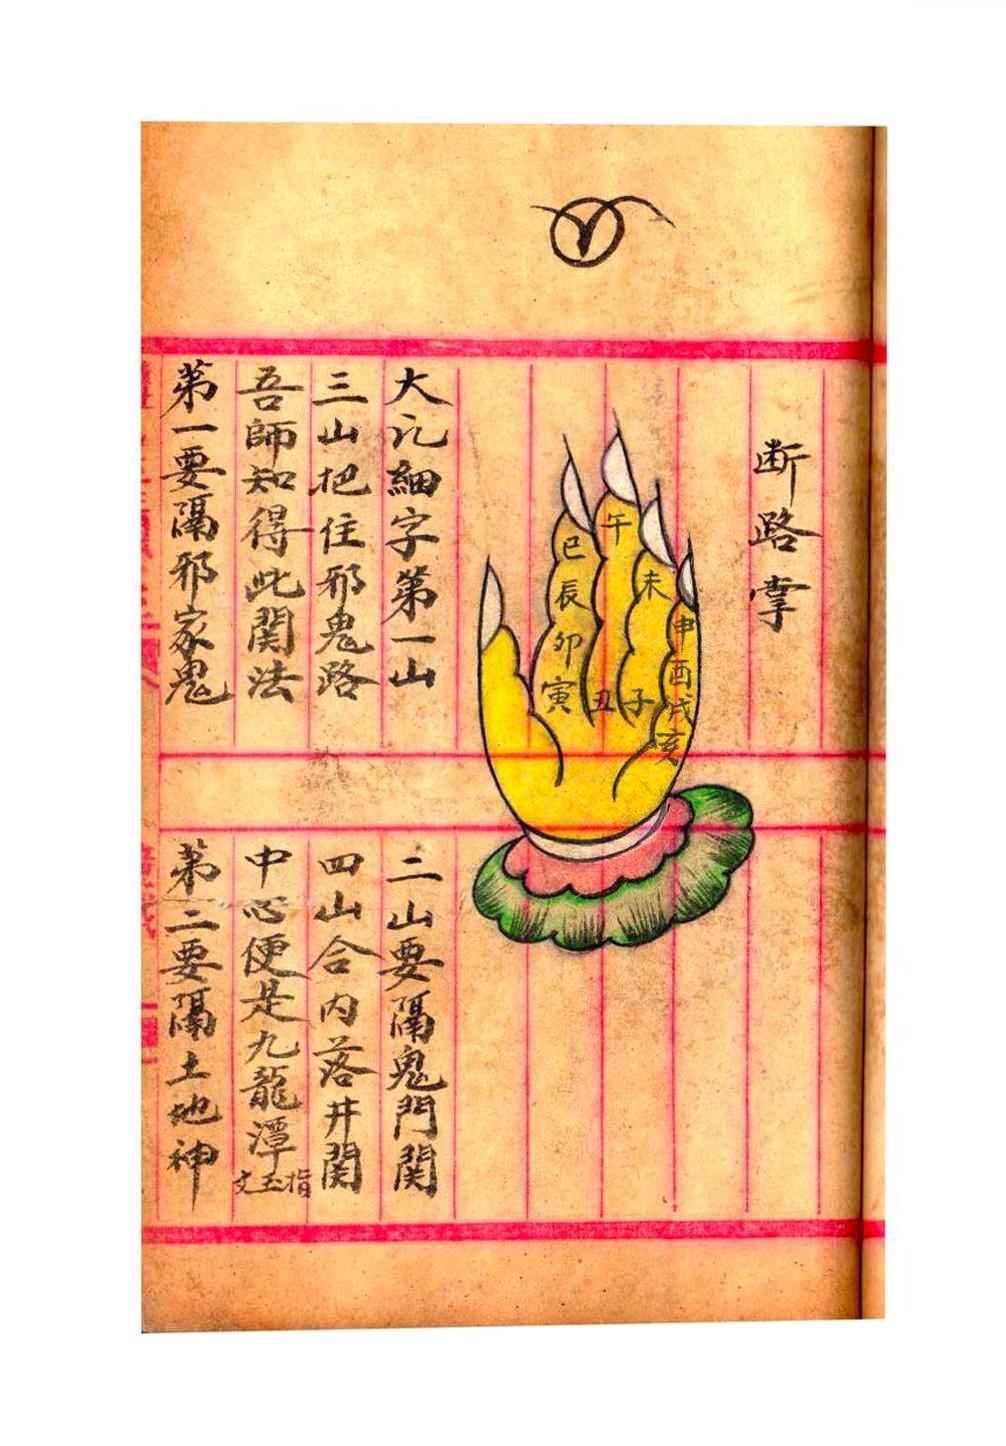 断路掌
午
巳
未
辰
申
卯
酉
寅
丑
子
戌
亥
大讫細字第一山
二山要隔鬼門関
三山把住邪鬼路
四山合内落井関
吾師知得此関法
中心便是九龍潭
指玉文
第一要隔邪家鬼
第二要隔土地神